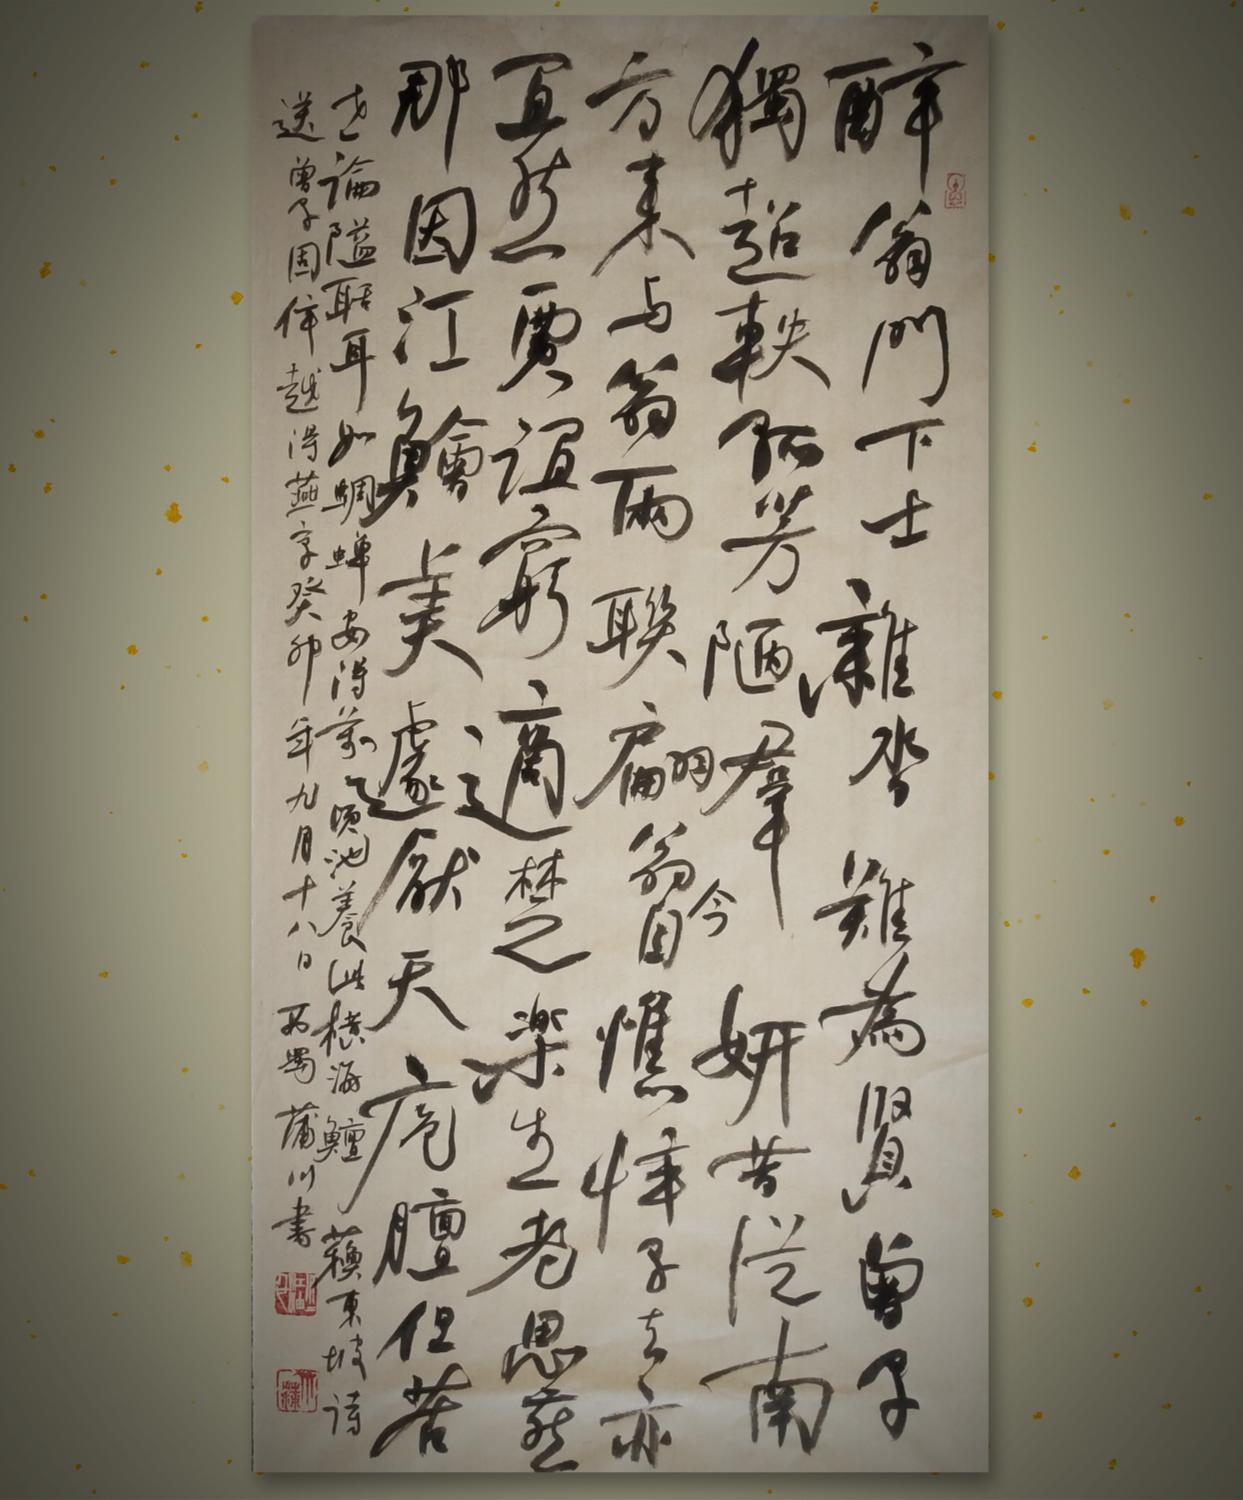 醉翁門下士雜沓難為賢曾子
獨超軼孤芳陋羣妍昔從南
方来与翁兩聯翩翁今自憔悴子去亦
宜然賈誼窮適楚楽生老思燕
那因江鱠美遽厭天庖膻但苦
世論隘聒耳如蜩蟬安得萬頃池養此橫海鱣 蘓東坡詩
送曾子固倅越得燕字癸卯年九月十八日西蜀蒲川書